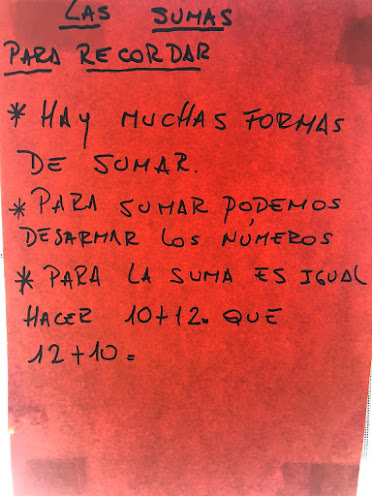 LAS SUMAS
PARA RECORDAR
* HAY MUCHAS FORMAS
DE SUMAR.
* PARA SUMAR PODEMOS
DESARMAR LOS NÚMEROS
* PARA LA SUMA ES IGUAL
HACER 10+12. QUE
12+10.